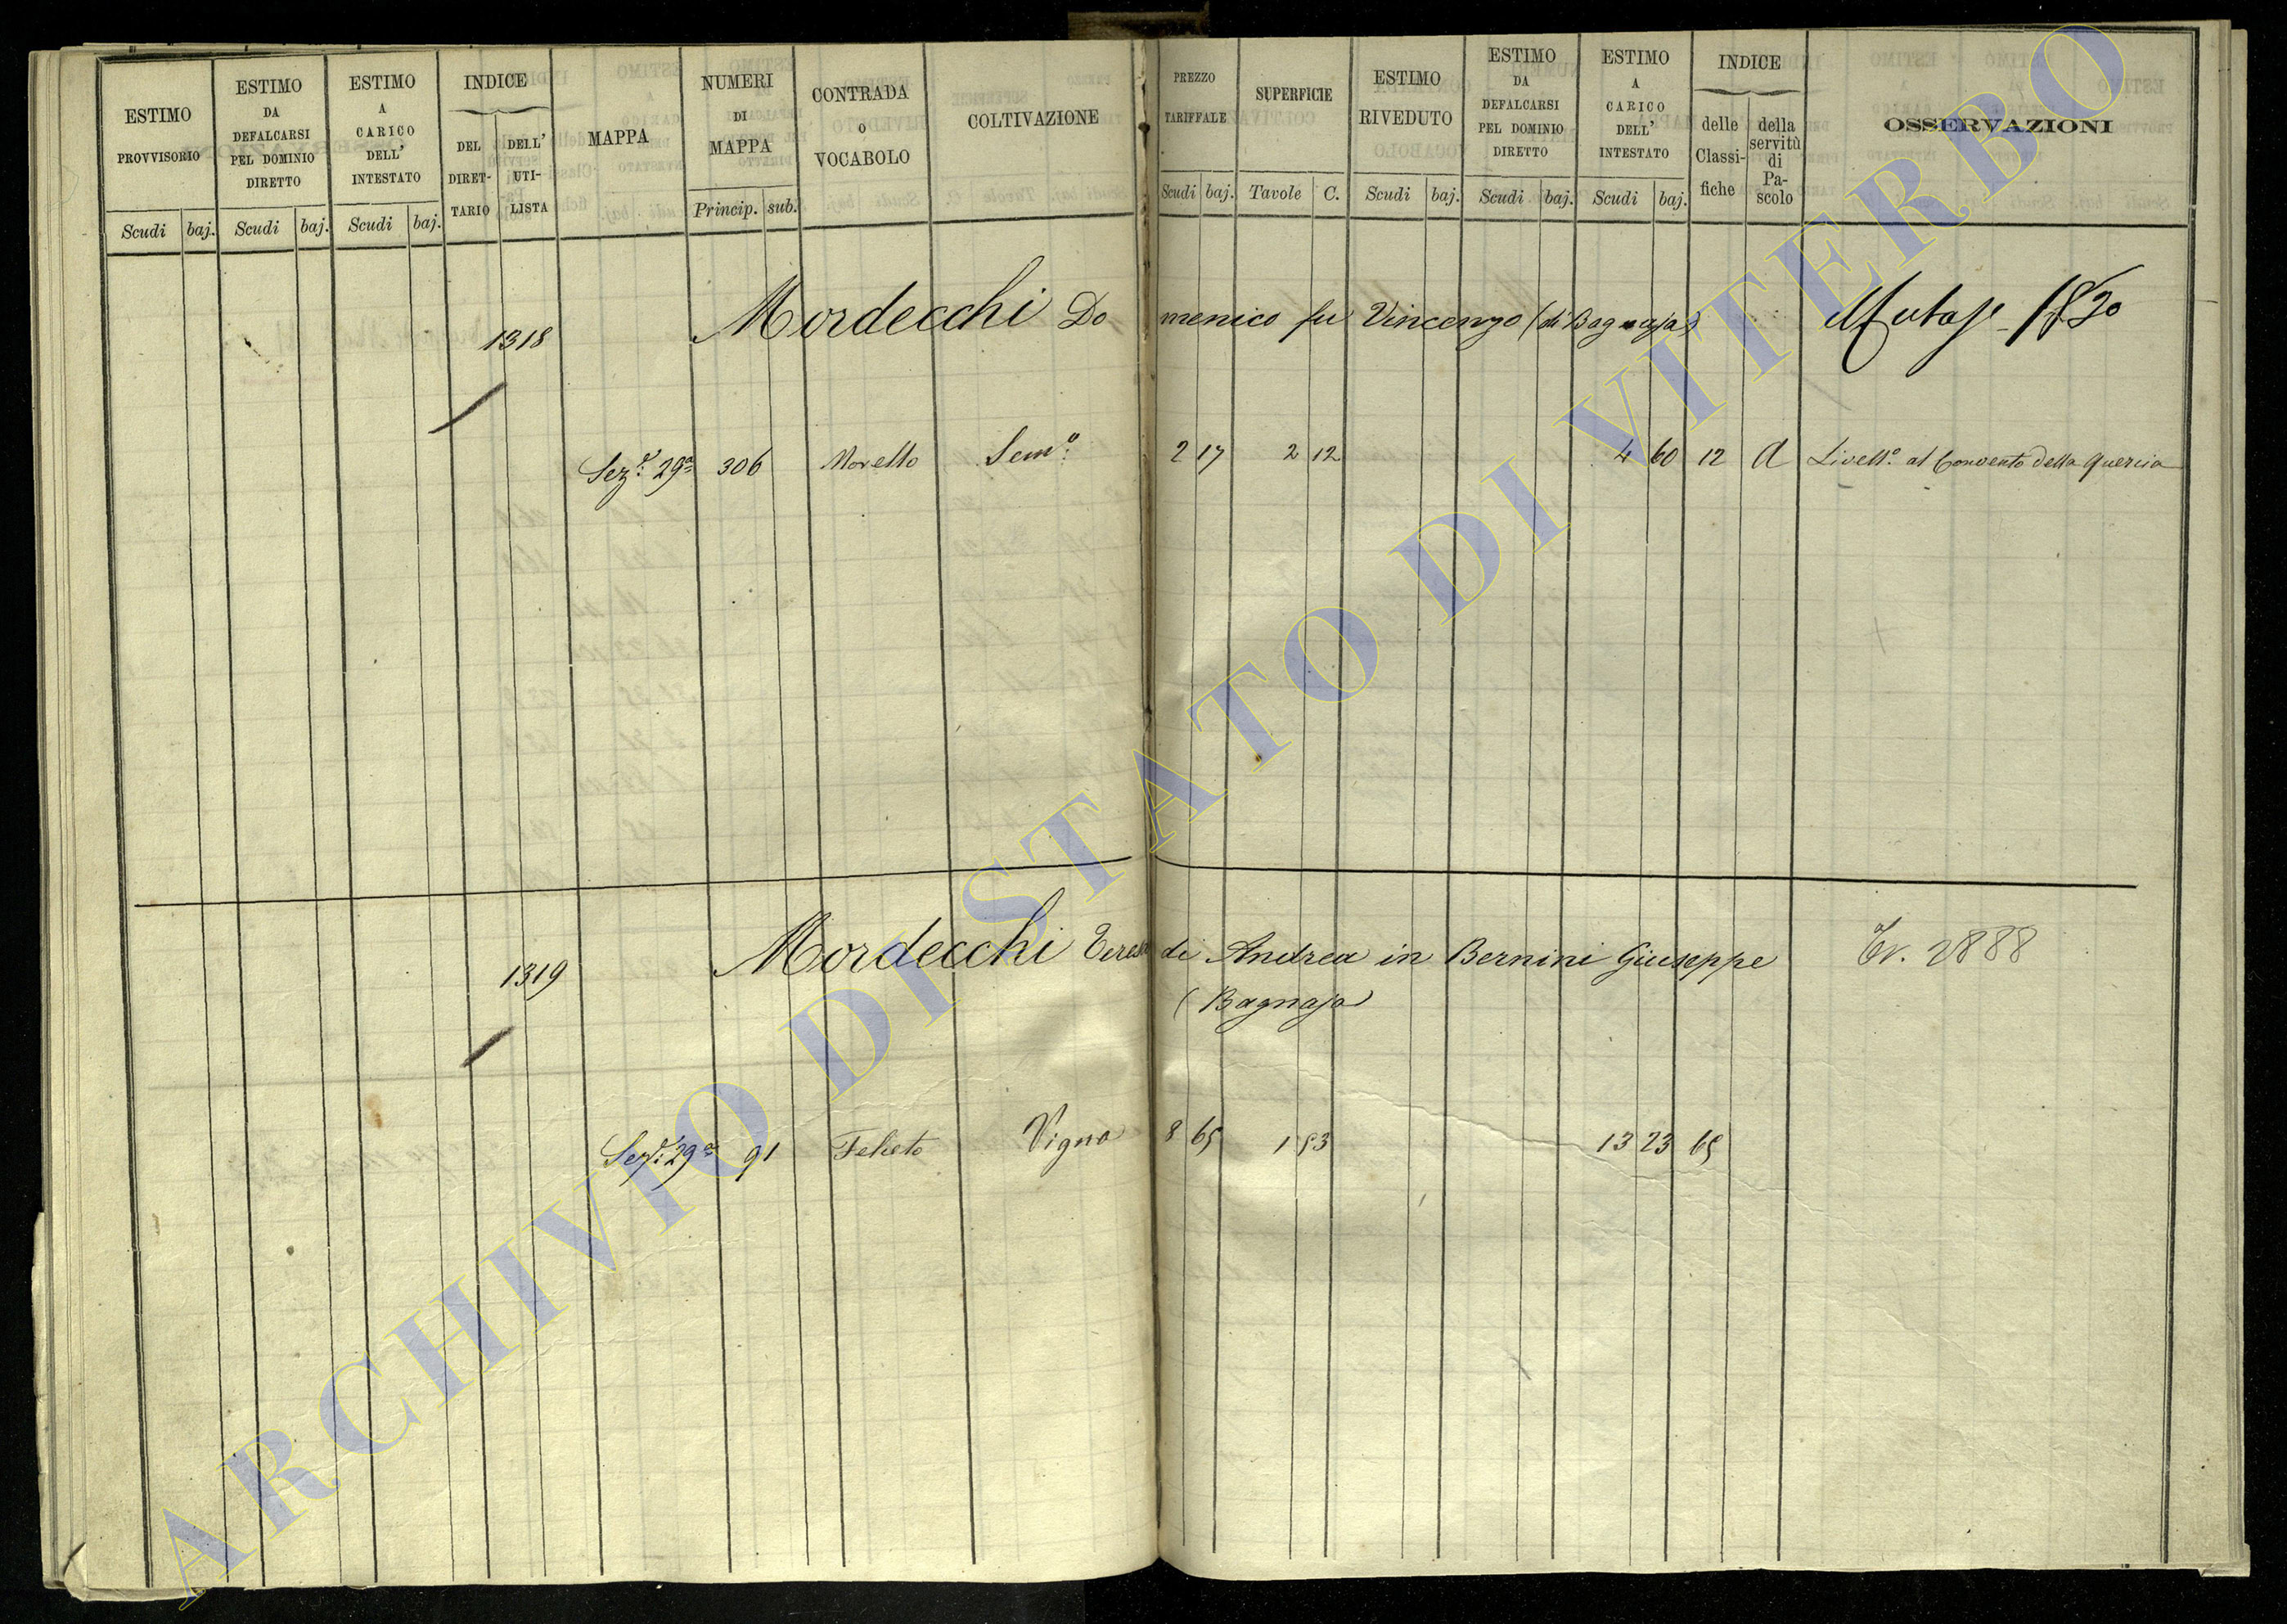 ESTIMO PROVVISORIO
Scudi baj.
ESTIMO DA DEFALCARSI PEL DOMINIO DIRETTO
Scudi baj.
ESTIMO A CARICO DELL' INTESTATO
Scudi baj.
INDICE
DEL DIRET-TARIO
DELL' UTI-LISTA
MAPPA
NUMERI DI MAPPA
Princip. sub.
CONTRADA O VOCABOLO
COLTIVAZIONE
PREZZO TARIFFALE
Scudi baj.
SUPERFICIE
Tavole C.
ESTIMO RIVEDUTO
Scudi baj.
ESTIMO DA DEFALCARSI PEL DOMINIO DIRETTO
Scudi baj.
ESTIMO A CARICO DELL' INTESTATO
Scudi baj.
INDICE
delle Classi-fiche
della servitù di Pa-scolo
OSSERVAZIONI
1318 Mordecchi Domenico fu Vincenzo (di Bagnaja)
Sez.e 29a 306 Novello Sem.o 2 17 2 12 4 60 12 A Livell.o al Convento della Quercia
1319 Mordecchi Teresa di Andrea in Bernini Giuseppe Tr. 2888
(Bagnaja)
Sez.e 29a 91 Feliceto Vigna 8 65 1 53 13 23 65
ARCHIVIO DI STATO DI VITERBO